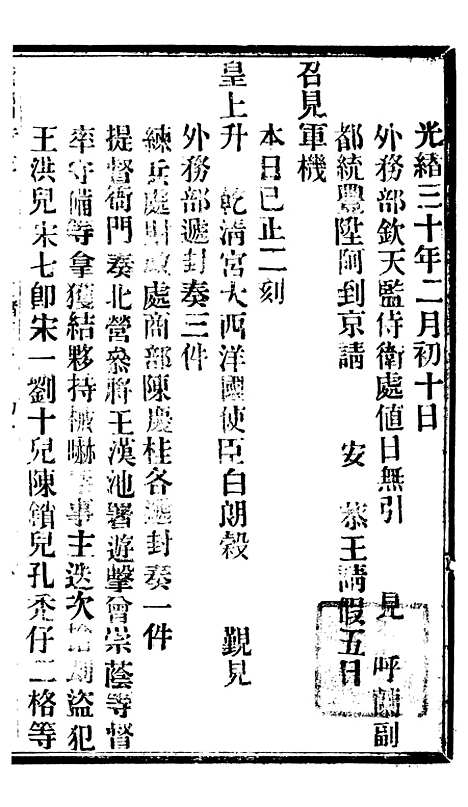 光緒三十年二月初十日
外務部欽天監侍衛處值日無引 見 呼蘭副
都統豐陞阿到京請 安 恭王請假五日
召見軍機
本日巳正二刻
皇上升 乾清宮大西洋國使臣白朗穀 覲見
外務部遞封奏三件
練兵處財政處商部陳慶桂各遞封奏一件
提督衙門奏北營叅將王漢池署遊擊曾宗蔭等督
率守備等拿獲結夥持械嚇事主迭次搶刼盜犯
王洪兒宋七卽宋一劉十兒陳鎖兒孔禿仔二格等